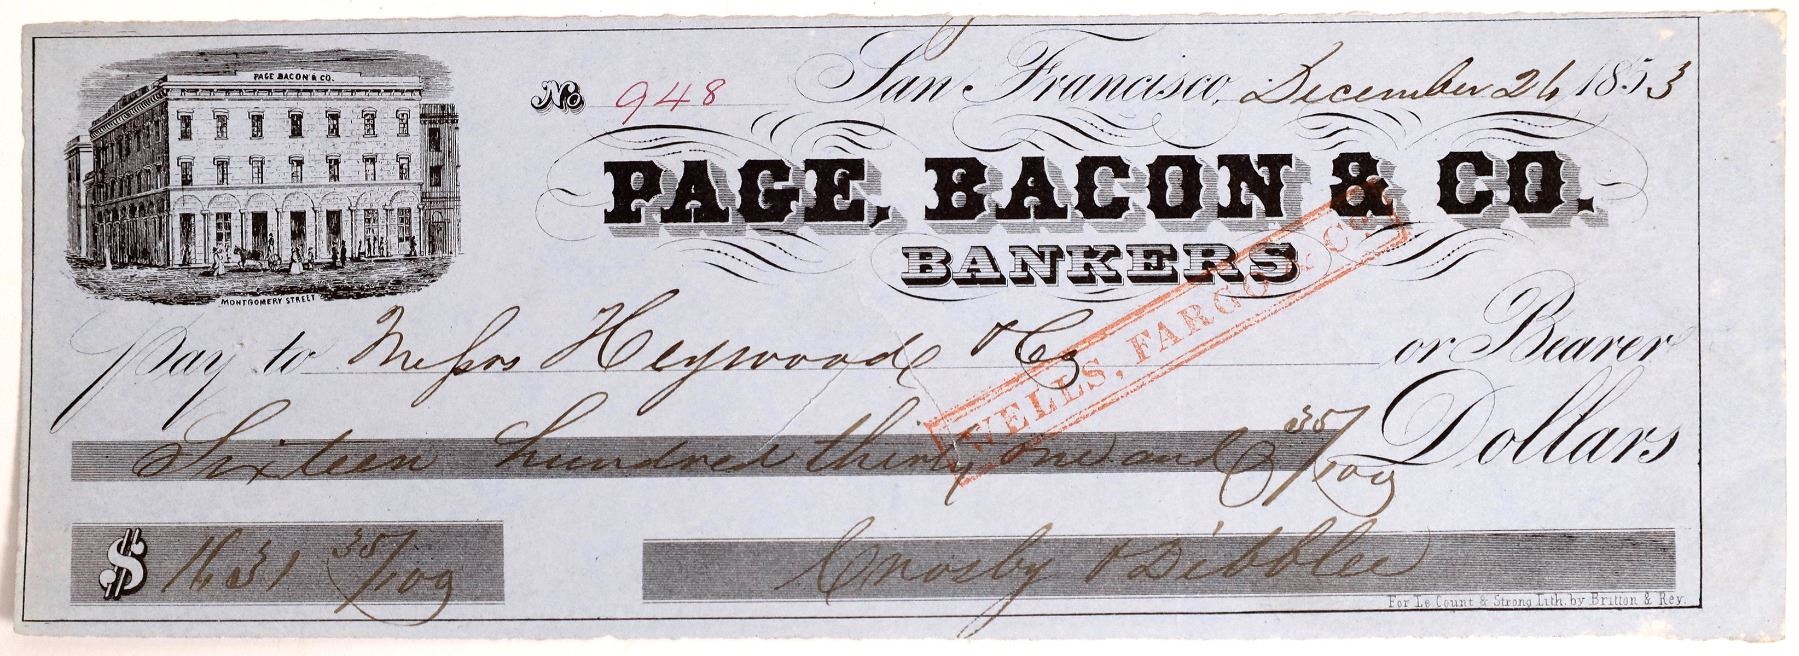 PAGE BACON & CO.
MONTGOMERY STREET
No 948 San Francisco, December 26 1853
PAGE, BACON & CO.
BANKERS
WELLS, FARGO & CO.
Pay to Messrs Heywood & Co or Bearer
Sixteen hundred thirty one and 35/100 Dollars
$ 1631 35/100 Crosby & Dibblee
For Le Count & Strong Lith. by Britton & Rey.